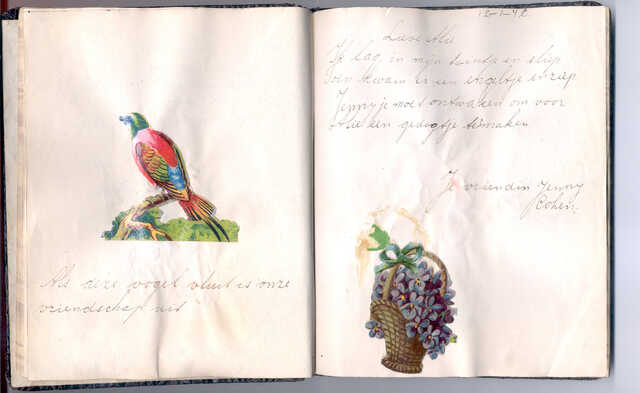 Als deze vogel vluit is onze
vriendschap uit
Lieve Alie
Ik lag in mijn tuintje en sliep
Toen kwam er een engeltje en riep
Jennyje moes ontwaken om voor
Alie een gedigtje temaken
Je vriendin Jenny
Cohen.